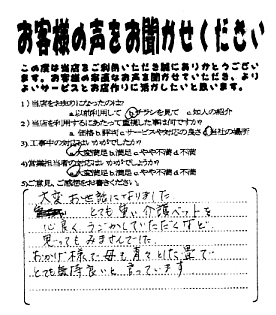 お客様の声をお聞かせください
この度は当店をご利用いただき誠にありがとうござい
ます。お客様の率直なお声を聞かせていただき、より
よいサービスとお店作りに活かしたいと思います。
1)当店をお知りになったのは?
a.以前利用して b.チラシを見て c.知人の紹介
2)当店を利用するにあたって重視した事は何ですか?
a.価格 b.評判 c.サービスや対応の良さ d.当社の場所
3)工事中の対応はいかがでしたか?
a.大変満足 b.満足 c.やや不満 d.不満
4)営業担当者の対応はいかがでしょうか?
a.大変満足 b.満足 c.やや不満 d.不満
5)ご意見、ご感想をお書きください。
大変お世話になりました
とても重い介護ベットを
心良くうごかしていただくなど
思ってもみませんでした
おかげ様で母も青々とした畳で
とても気持良いと言っています